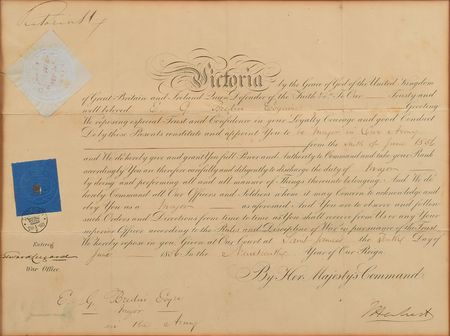 Victoria R
Victoria by the Grace of God of the United Kingdom
of Great Britain and Ireland Queen Defender of the Faith &c. To Our Trusty and
well beloved Esquire Greeting
We reposing especial Trust and Confidence in your Loyalty Courage and good Conduct
Do by these Presents constitute and appoint You to be Major in Our Army
from the sixth of June 1856
and We do hereby give and grant you full Power and Authority to Command and take your Rank
accordingly You are therefore carefully and diligently to discharge the duty of Major
by doing and performing all and all manner of Things thereunto belonging And We do
hereby Command all Our Officers and Soldiers whom it may Concern to acknowledge and
obey You as a Major as aforesaid And You are to observe and follow
such Orders and Directions from time to time as You shall receive from Us or any Your
superior Officer according to the Rules and Discipline of War in pursuance of the Trust
We hereby repose in you. Given at Our Court at Saint James's the Day of
June 1856 In the Nineteenth Year of Our Reign.
By Her Majesty's Command
Entered
War Office
E. G. Bredin Esqre
Major
in the Army